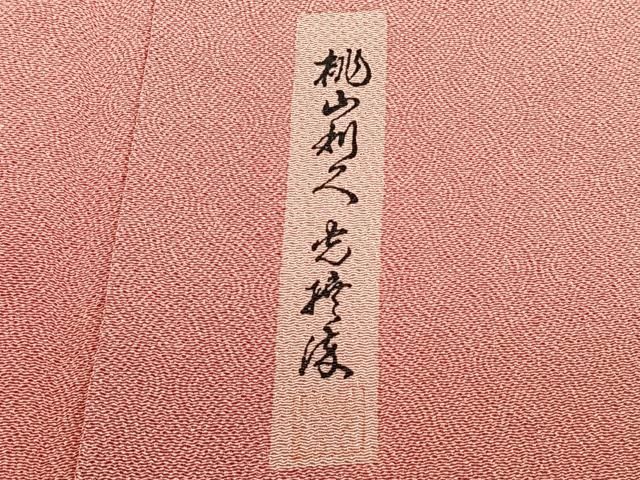 桃山利久 光琳波